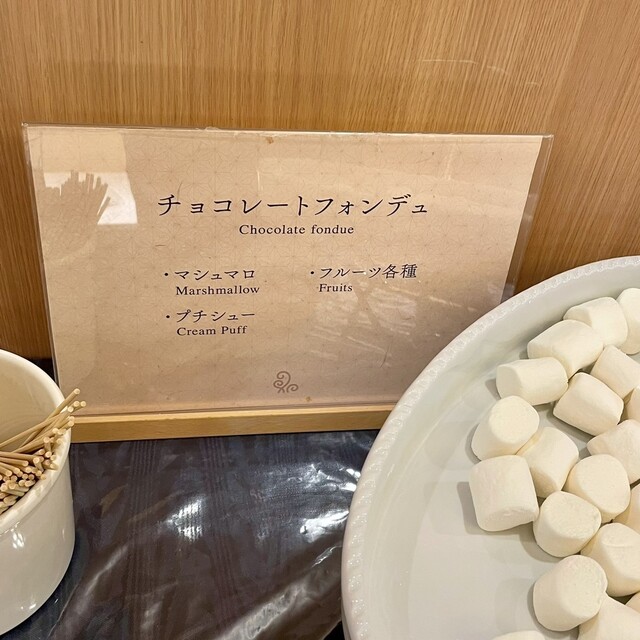 チョコレートフォンデュ
Chocolate fondue
・マシュマロ
Marshmallow
・プチシュー
Cream Puff
・フルーツ各種
Fruits